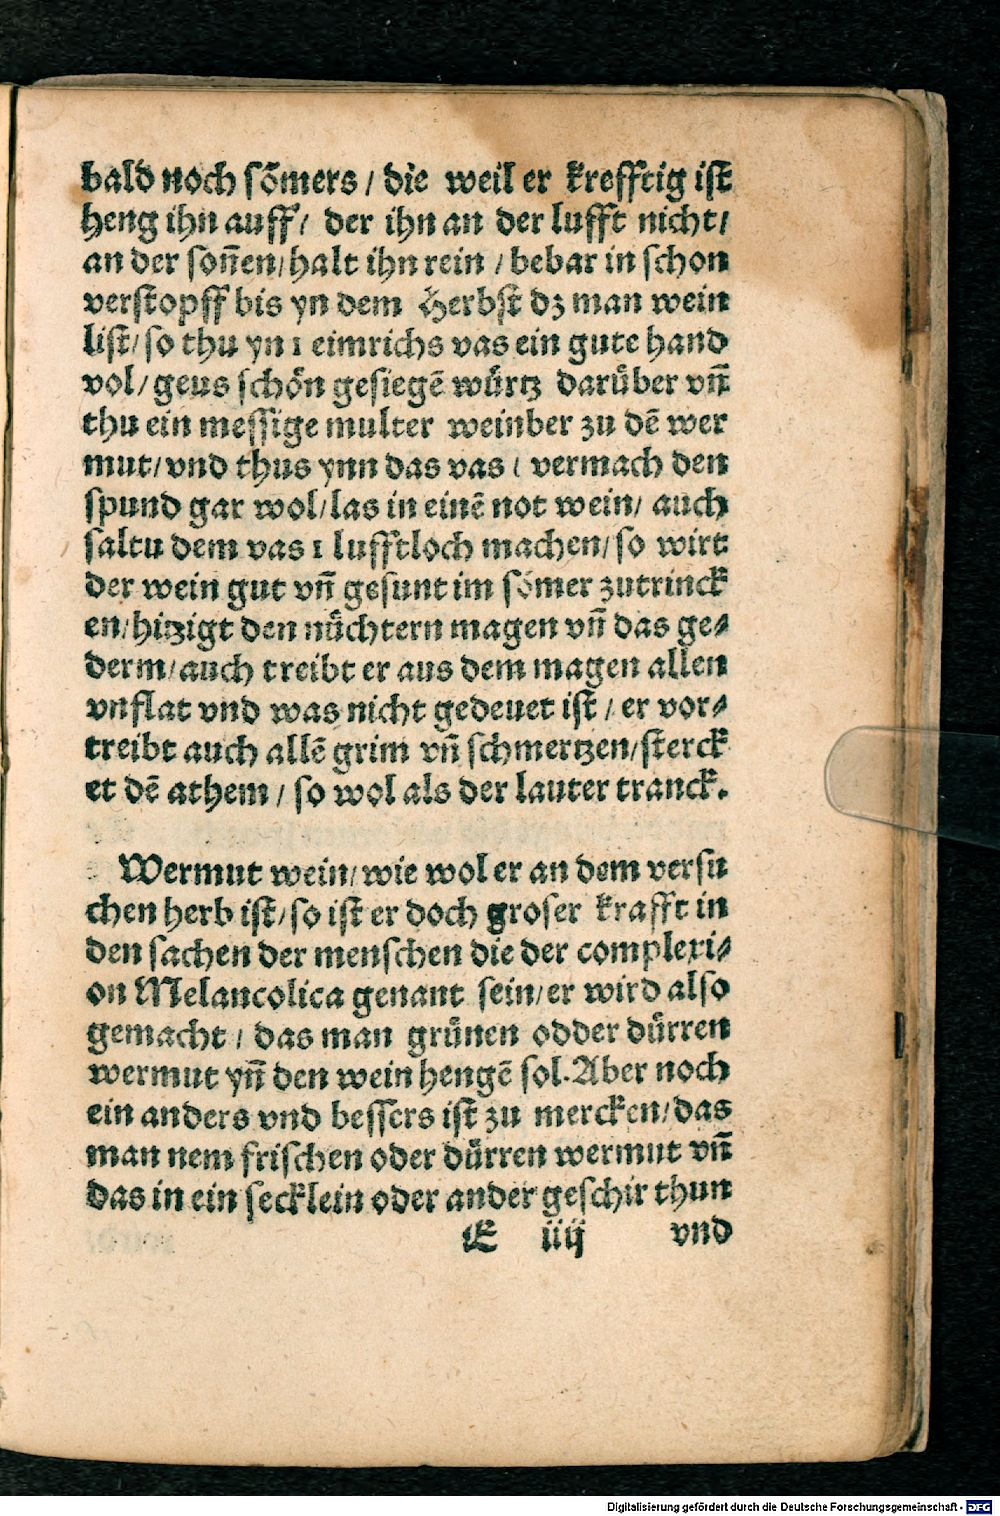 bald noch sõmers / die weil er krefftig ist
heng ihn auff / der ihn an der lufft nicht /
an der soñen / halt ihn rein / bebar in schon
verstopff bis yn dem Herbst dz man wein
list / so thu yn 1 eimrichs vas ein gute hand
vol / geus schön gesiegẽ würtz darüber vñ
thu ein messige multer weinber zu dẽ wer
mut / vnd thus ynn das vas ( vermach den
spund gar wol / las in einẽ not wein / auch
saltu dem vas 1 lufftloch machen / so wirt
der wein gut vñ gesunt im sõmer zutrinck
en / hitzigt den nüchtern magen vñ das ge⸗
derm / auch treibt er aus dem magen allen
vnflat vnd was nicht gedeuet ist / er vor⸗
treibt auch allẽ grim vñ schmertzen / sterck
et dẽ athem / so wol als der lauter tranck.
Wermut wein / wie wol er an dem versu
chen herb ist / so ist er doch groser krafft in
den sachen der menschen die der complexi⸗
on Melancolica genant sein / er wird also
gemacht / das man grünen odder dürren
wermut yñ den wein hengẽ sol. Aber noch
ein anders vnd bessers ist zu mercken / das
man nem frischen oder dürren wermut vñ
das in ein secklein oder ander geschir thun
E iiij vnd
Digitalisierung gefördert durch die Deutsche Forschungsgemeinschaft - DFG